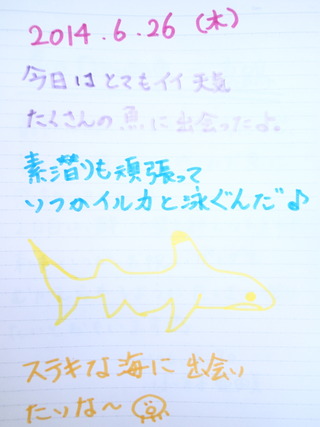 2014.6.26 (木)
今日はとてもイイ天気
たくさんの魚に出会ったよ。
素潜りも頑張って
いつかイルカと泳ぐんだ♪
ステキな海に出会い
たいな〜